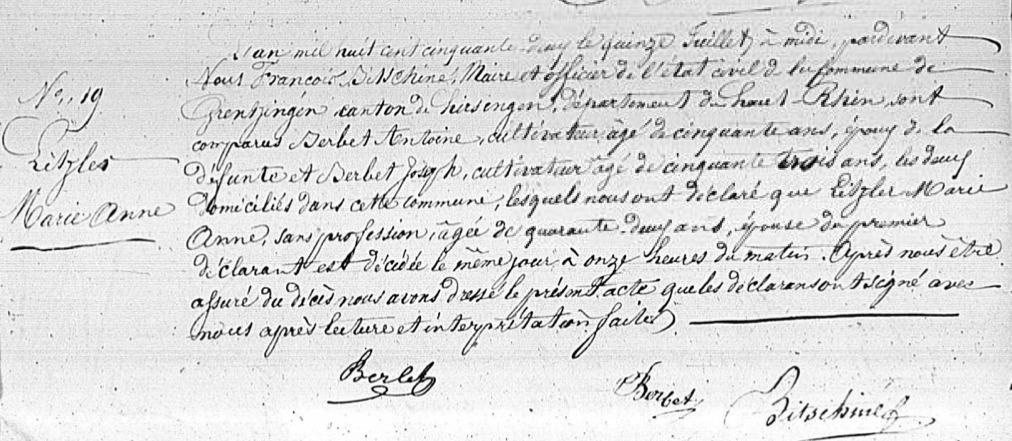 L'an mil huit cent cinquante-deux le quinze Juillet à midi, pardevant
Nous François Bitschiné, Maire et officier de l'état civil de la Commune de
N.º 19
Grentzingen canton de hirsengen, département du haut-Rhin, sont
comparus Berbet Antoine, cultivateur âgé de cinquante ans, époux de la
Litzler
défunte et Berbet Joseph, cultivateur âgé de cinquante trois ans, les deux
domiciliés dans cette commune, lesquels nous ont déclaré que Litzler Marie
Marie Anne
Anne, sans profession, âgée de quarante-deux ans, épouse du premier
déclarant est décédée le même jour à onze heures du matin. Après nous être
assuré du décès nous avons dressé le présent acte que les déclarans ont signé avec
nous après lecture et interprétation faites.
Berbet
Berbet
Bitschiné